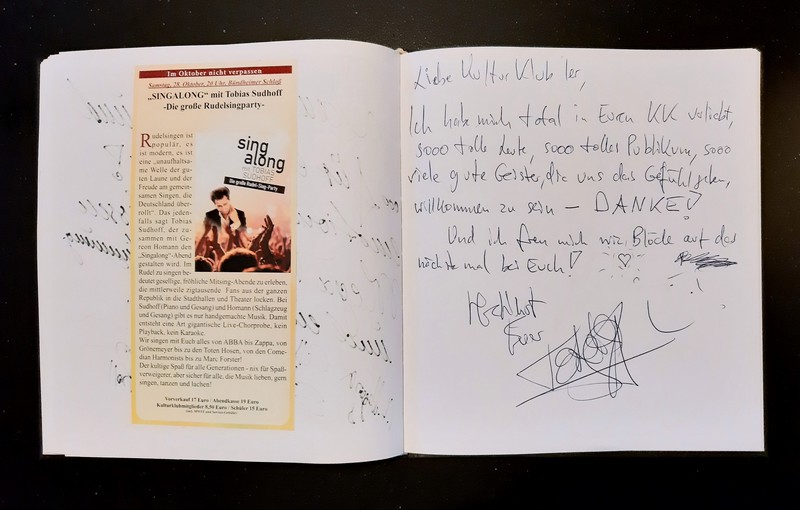 Im Oktober nicht verpassen
Samstag, 28. Oktober, 20 Uhr, Bündheimer Schloß
„SINGALONG“ mit Tobias Sudhoff
-Die große Rudelsingparty-
Rudelsingen ist
populär, es
ist modern, es ist
eine „unaufhaltsa-
me Welle der gu-
ten Laune und der
Freude am gemein-
samen Singen, die
Deutschland über-
rollt“. Das jeden-
falls sagt Tobias
Sudhoff, der zu-
sammen mit Ge-
reon Homann den
„Singalong“-Abend
gestalten wird. Im
Rudel zu singen be-
deutet gesellige, fröhliche Mitsing-Abende zu erleben,
die mittlerweile zigtausende Fans aus der ganzen
Republik in die Stadthallen und Theater locken. Bei
Sudhoff (Piano und Gesang) und Homann (Schlagzeug
und Gesang) gibt es nur handgemachte Musik. Damit
entsteht eine Art gigantische Live-Chorprobe, kein
Playback, kein Karaoke.
Wir singen mit Euch alles von ABBA bis Zappa, von
Grönemeyer bis zu den Toten Hosen, von den Come-
dian Harmonists bis zu Marc Forster!
Der kultige Spaß für alle Generationen - nix für Spaß-
verweigerer, aber sicher für alle, die Musik lieben, gern
singen, tanzen und lachen!
Vorverkauf 17 Euro / Abendkasse 19 Euro
Kulturklubmitglieder 8,50 Euro / Schüler 15 Euro
sing
along
mit TOBIAS
SUDHOFF
Die große Rudel-Sing-Party
Liebe KulturKlub'ler,
Ich habe mich total in Euren KK verliebt,
sooo tolle Leute, sooo tolles Publikum, sooo
viele gute Geister, die uns das Gefühl geben,
willkommen zu sein – DANKE!
Und ich freu mich wie Blöde auf das
nächste mal bei Euch!
Herzlichst
Euer